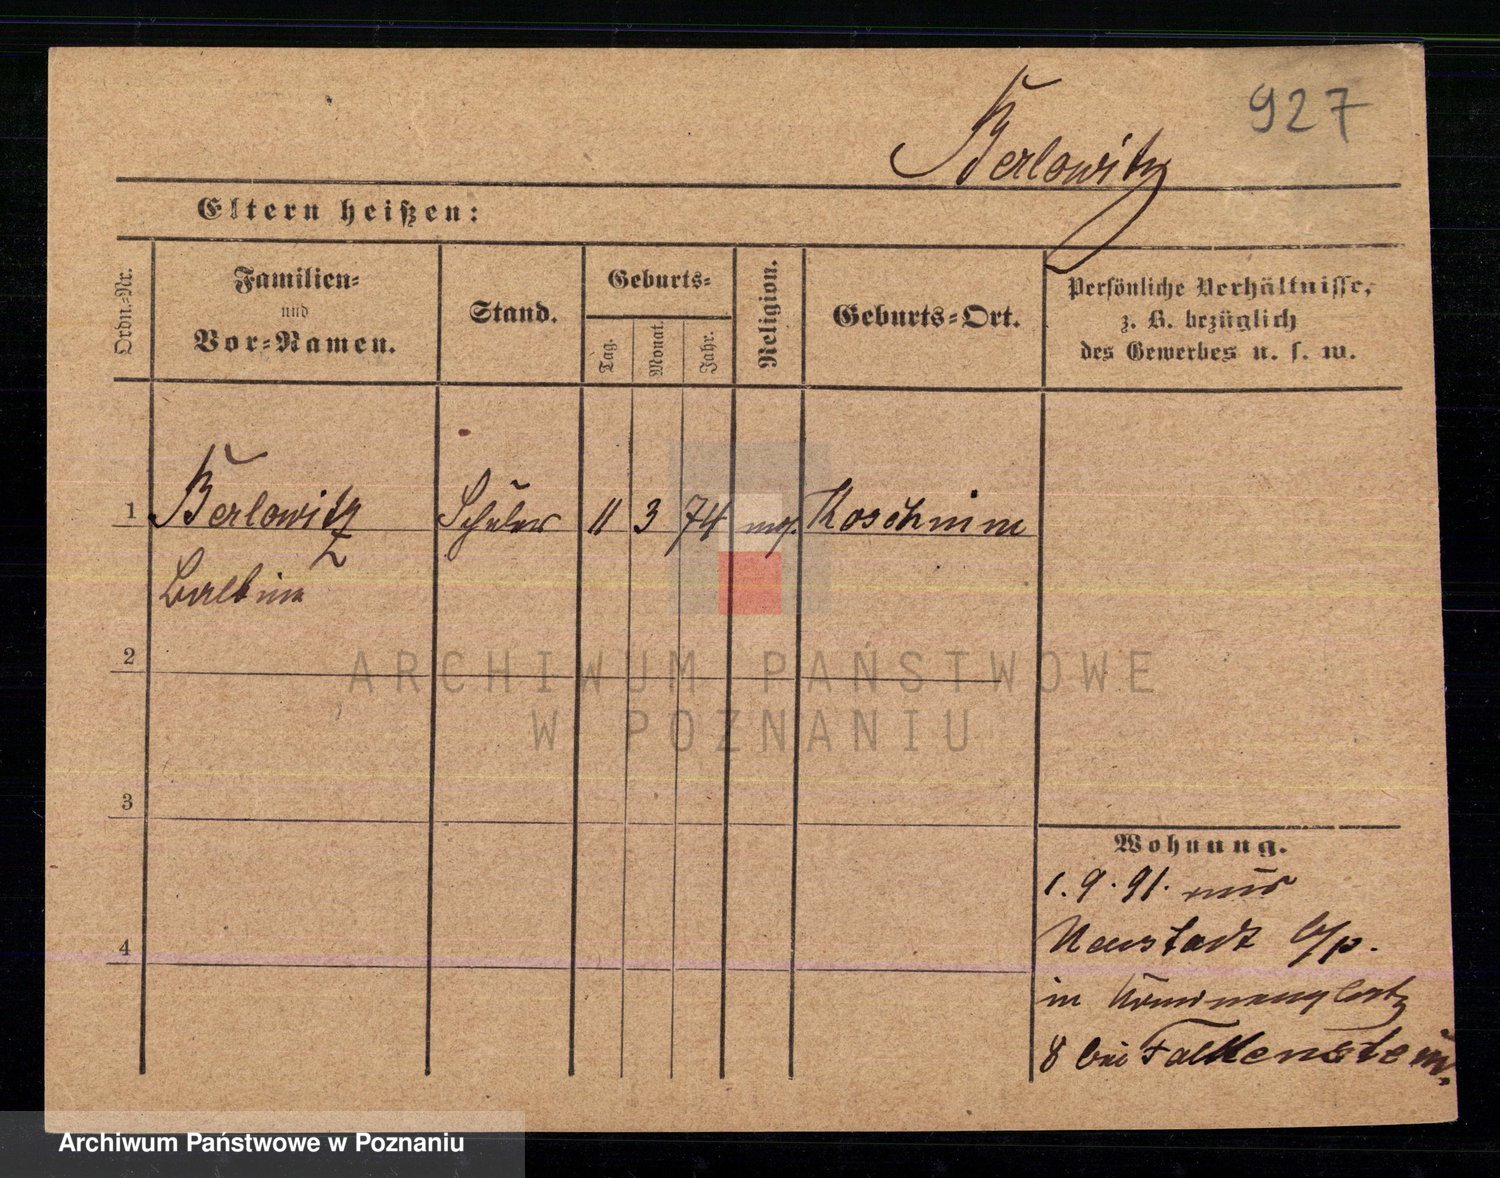 927
Berlowitz
Eltern heißen:
Ordn.-Nr.
Familien-
und
Vor-Namen.
Stand.
Geburts-
Tag.
Monat.
Jahr.
Religion.
Geburts-Ort.
Persönliche Verhältnisse,
z. B. bezüglich
des Gewerbes u. s. w.
1 Berlowitz Schüler 11 3 74 mos. Koschmin
2
3
4
Wohnung.
1.9.91. aus
Neustadt b/p.
in
8 bei Falkenstein.
ARCHIWUM PAŃSTWOWE
W POZNANIU
Archiwum Państwowe w Poznaniu